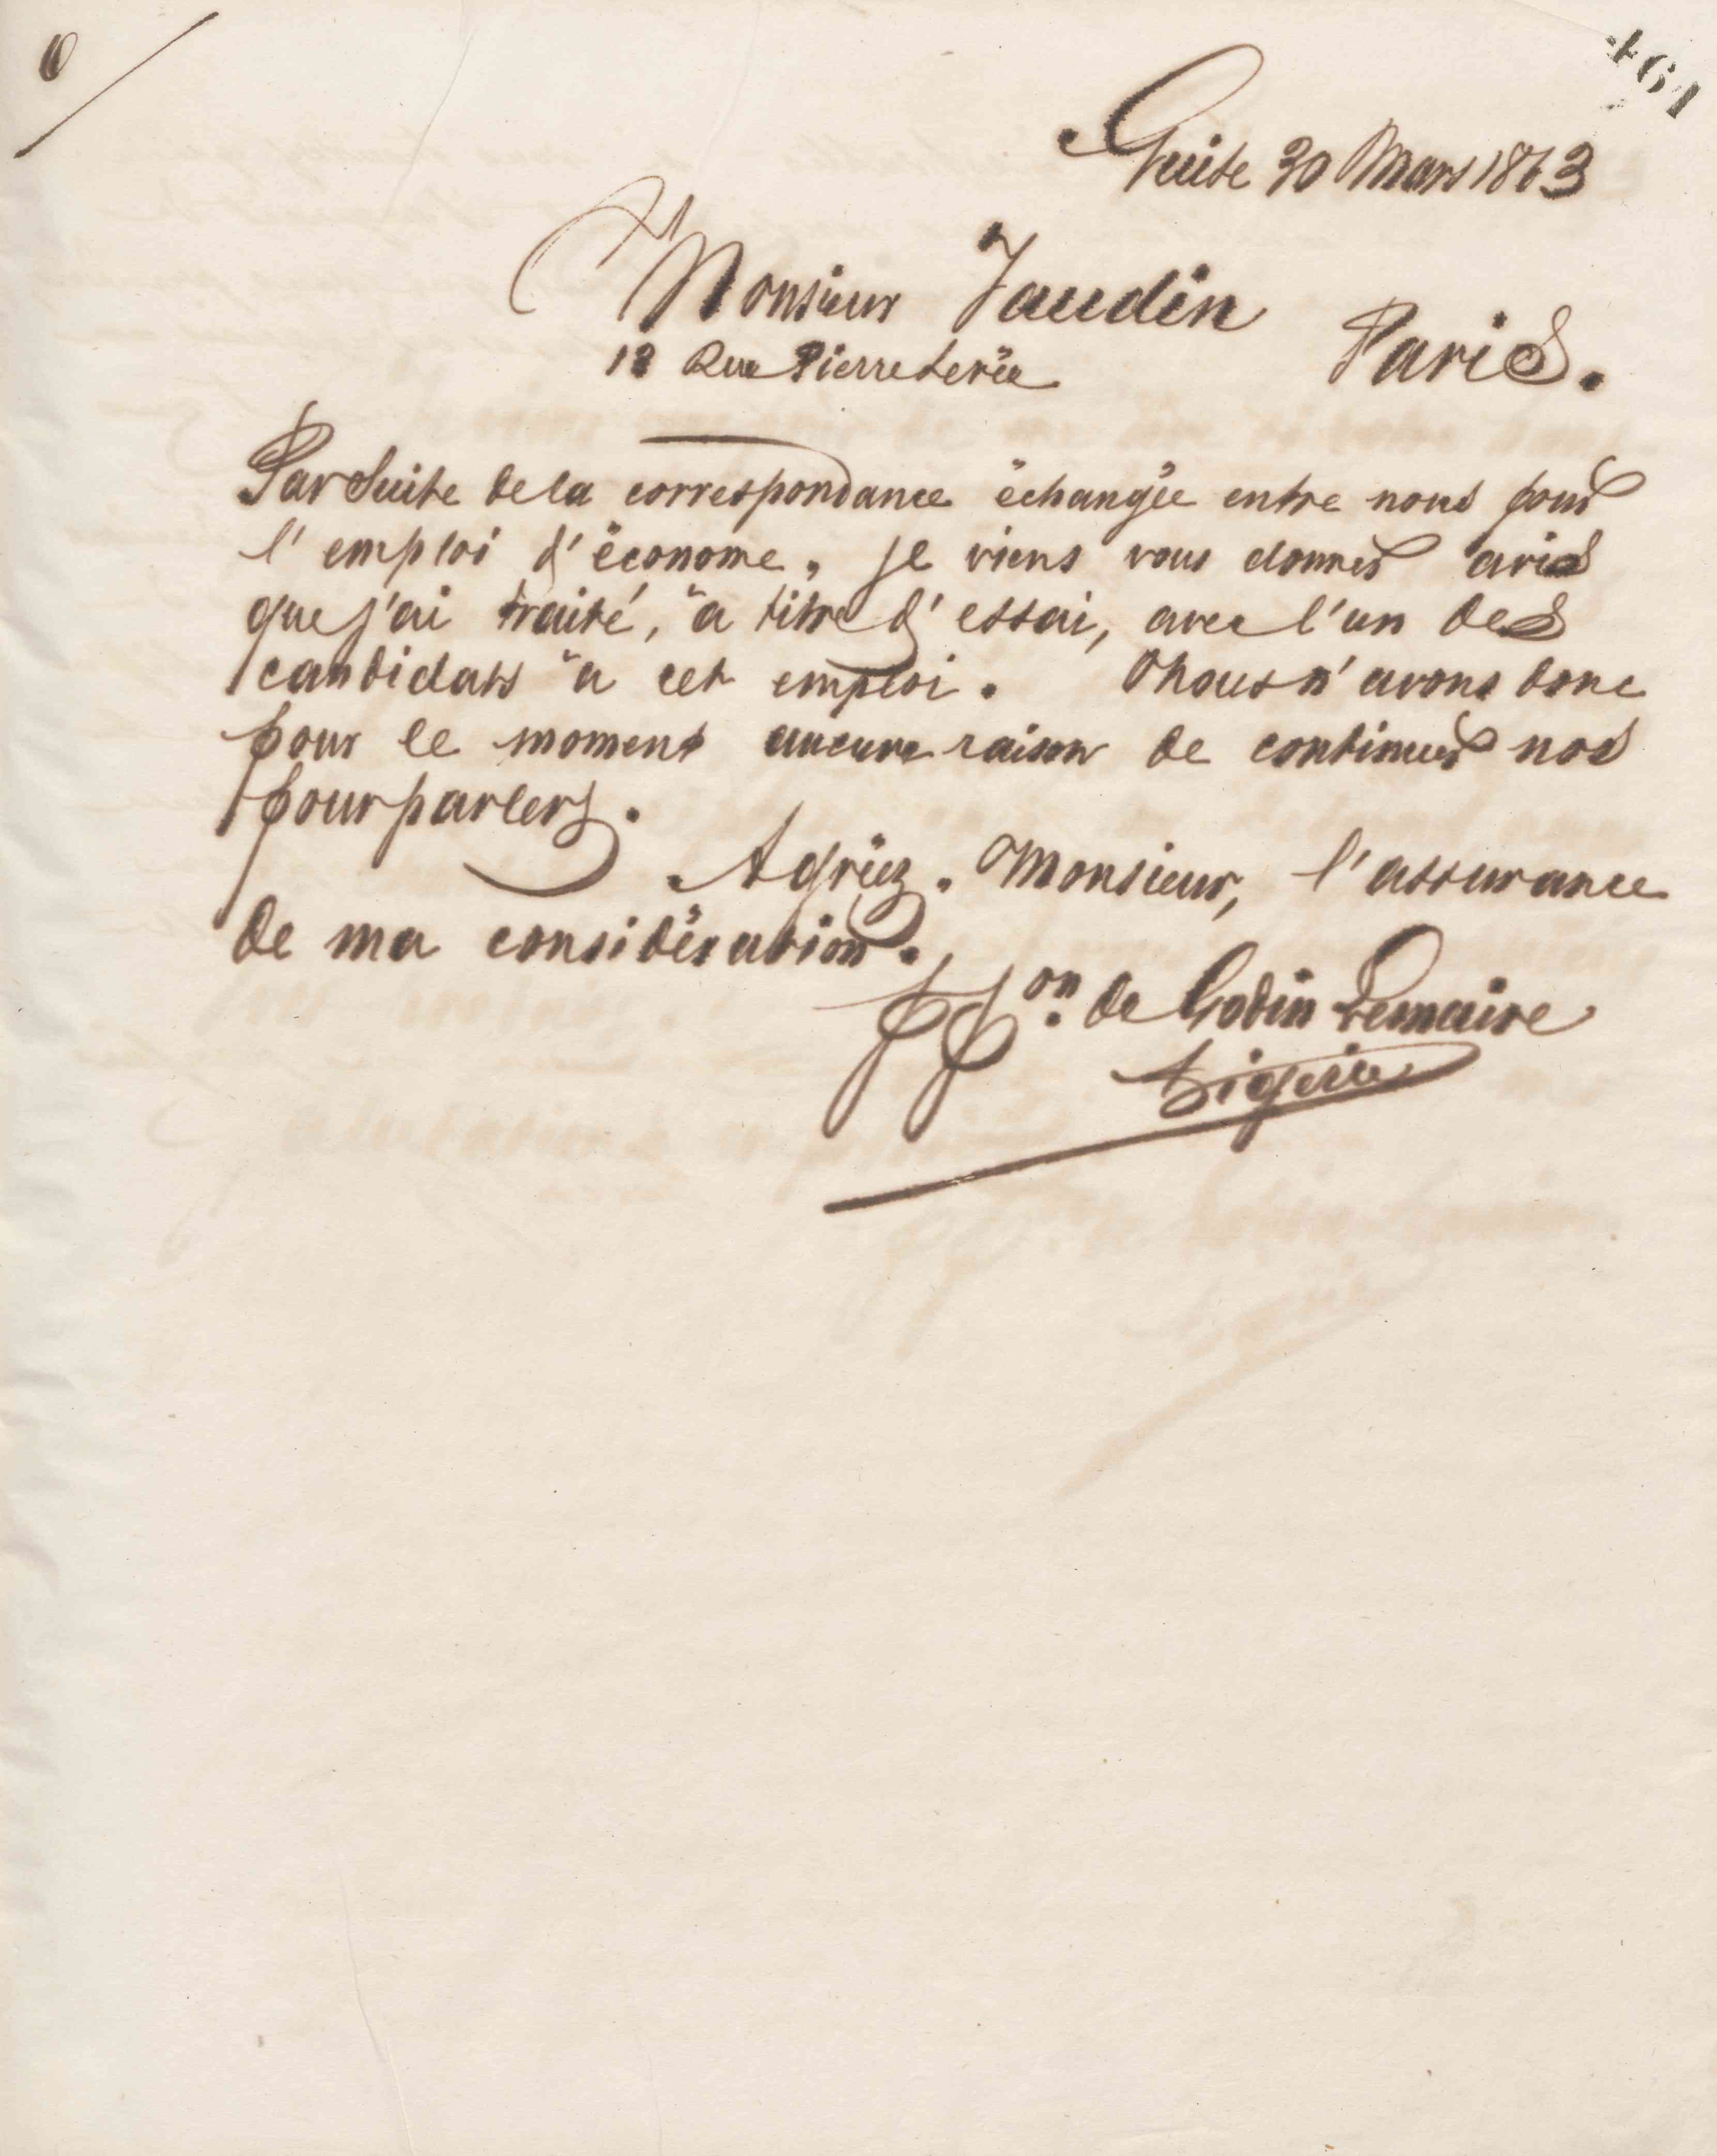 461
Guise 30 Mars 1863
Monsieur Jaudin
Paris.
18 Rue Pierre Levée
Par suite de la correspondance échangée entre nous pour
l'emploi d'économe, je viens vous donner avis
que j'ai traité, à titre d'essai, avec l'un des
candidats à cet emploi. Nous n'avons donc
pour le moment aucune raison de continuer nos
pourparlers.
Agréez. Monsieur, l'assurance
de ma considération.
pp.on de Godin Lemaire